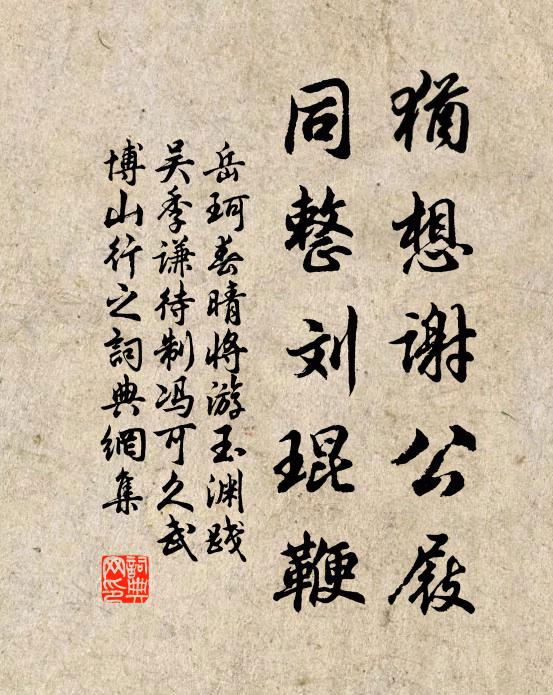 猶想謝公屐
同整刘琨鞭
岳珂春晴将游玉渊践
吴季謙待制冯可久武
博山行之詞典網集
詞典
网印